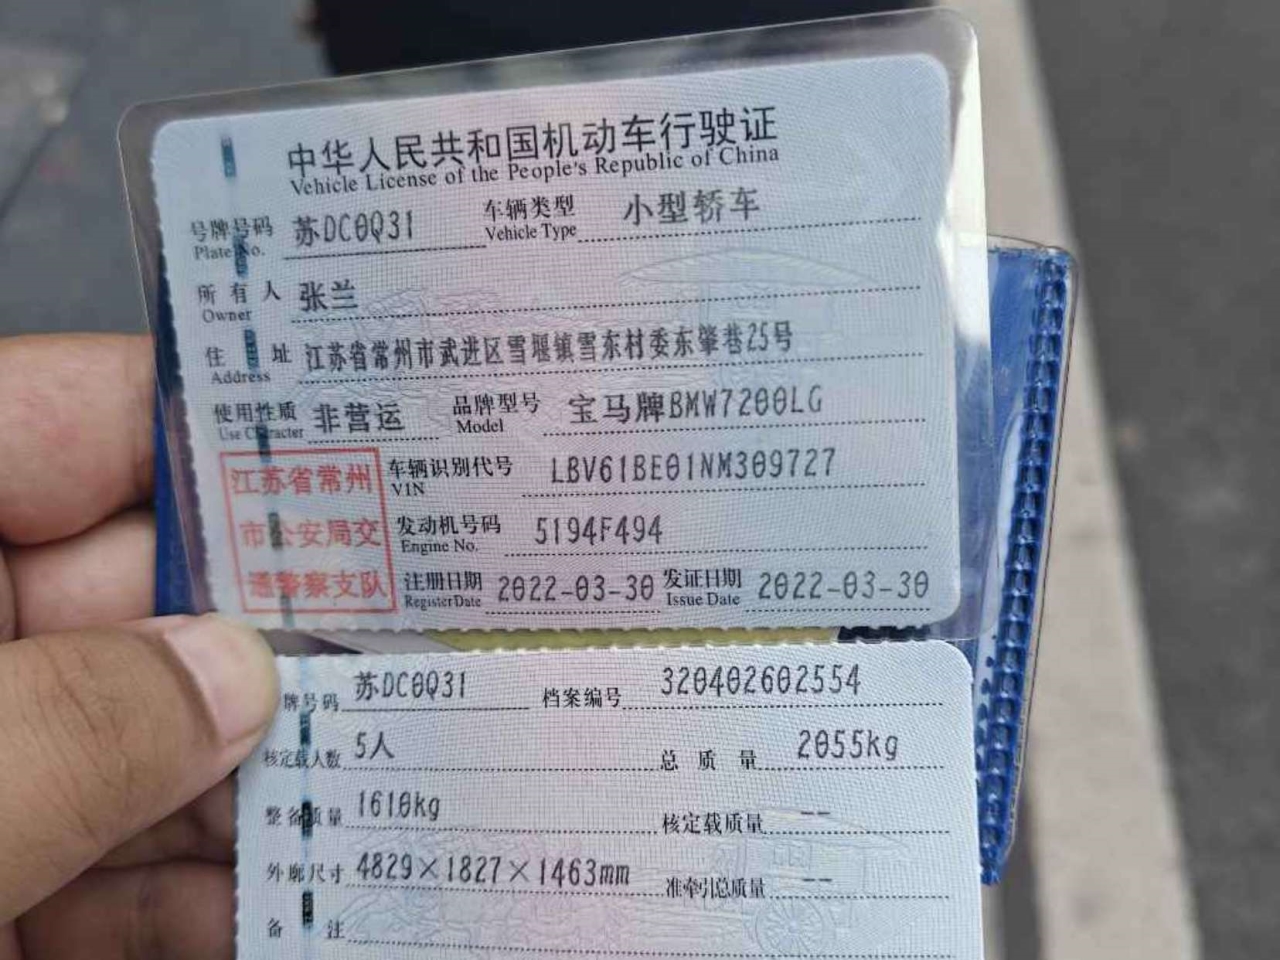 中华人民共和国机动车行驶证
Vehicle License of the People's Republic of China
号牌号码 苏DC0Q31 车辆类型 小型轿车
Plate No. Vehicle Type
所有人 张兰
Owner
住址 江苏省常州市武进区雪堰镇雪东村委东肇巷25号
Address
使用性质 非营运 品牌型号 宝马牌BMW7200LG
Use Character Model
江苏省常州
市公安局交
通警察支队
车辆识别代号 LBV61BE01NM309727
VIN
发动机号码 5194F494
Engine No.
注册日期 2022-03-30 发证日期 2022-03-30
Register Date Issue Date
牌号码 苏DC0Q31 档案编号 320402602554
核定载人数 5人 总质量 2055kg
整备质量 1610kg 核定载质量 --
外廓尺寸 4829×1827×1463mm 准牵引总质量 --
备注